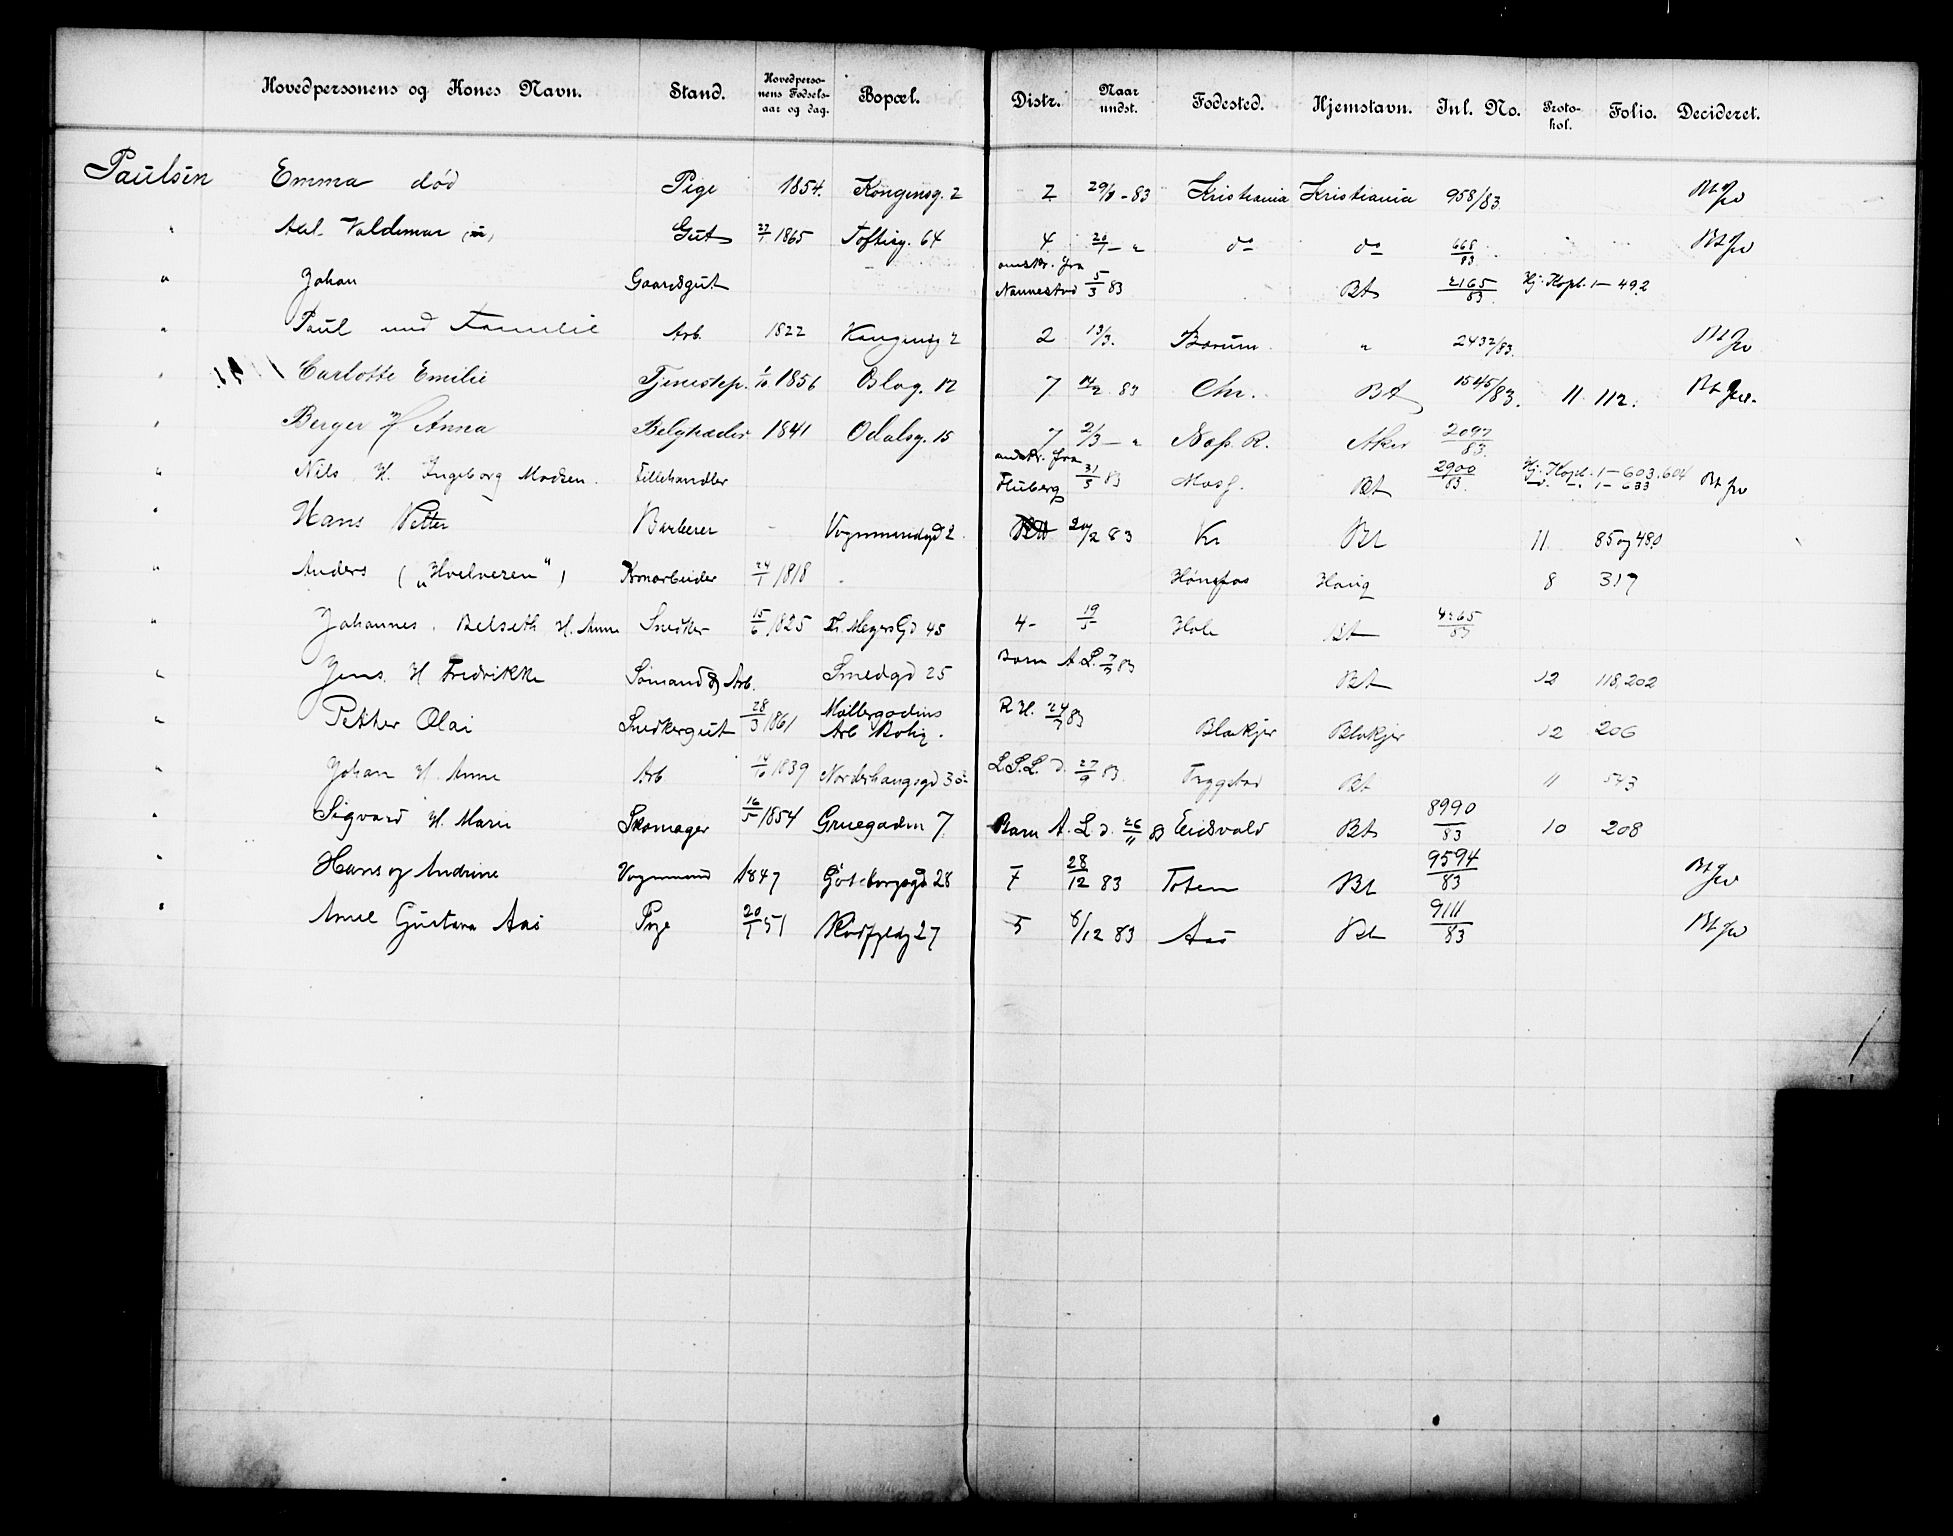 Hovedpersonens og Kones Navn. Stand. Hovedpersonens Fødselsaar og dag. Bopæl. Distr. Naar undst. Fødested. Hjemstavn. Jnl. No. Protokol. Folio. Decideret.
Paulsen Emma død Pige 1854. Kongensg. 2 2 29/1-83 Kristiania Kristiania 958/83
" Axel Valdemar Gut 27/1 1865 Toftesg. 64 4 20/1 - " do do 668/83
" Johan Gaardsgut omskr. fra Nannestad 5/3 83 Bt 2165/83 Hj. Kopb. 1- 492
" Paul med Familie Arb. 1822 Kongensg 2 2 13/3. Bærum " 2432/83.
" Carlotte Emilie Tjenestep. 1/10 1856 Oslog. 12 7 14/2 83 Chr. Bt 1545/83. 11 112.
" Berger H Anna Belgtræder 1841 Odalsg. 15 7 2/3 - " Næs. R. Aker 2097/83.
" Nils H. Ingeborg Madsen. Fillehandler andkr. fra Fluberg 31/3 83 Moss. Bt 2900/83. Hj. Kopb. 1-603.604 1-633
" Hans Petter Barberer Vognmandsgd 2. 20/2 83 Kr Bt 11 85 og 480
" Anders („Hvelveren“) Kornarbeider 24/1 1818 Hønefos Houg 8 317
" Johannes. Belseth H. Anne Snedker 15/6 1825 Th. Meyers Gd 45 4- 19/5 Hole Bt 4265/83
" Jens. H Fredrikke Sømand & Arb. Smedgd 25 Barn A. L. 7/7 83 Bt 12 118,202
" Petther Olai Snedkergut 28/3 1861 Møllergadens Arb Bolig. R. H. 24/7 83 Blakjer Blakjer 12 206
" Johan H. Anne Arb 14/10 1839 Nordrehaugsgd 30 L.S.L. d. 27/9 83. Trygstad Bt 11 543
" Sigvard H. Marie Skomager 16/5 1854 Gruegaden 7. Barn A. L. d. 26/11 83 Eidsvold Bt 8990/83 10 208
" Hans og Andrine Vognmand 1847 Gøteborgsgd 28 7 28/12 83 Toten Bt 9594/83
" Anne Gustava Aas Pige 20/1 51 27 5 6/12 83 Aas Bt 9111/83